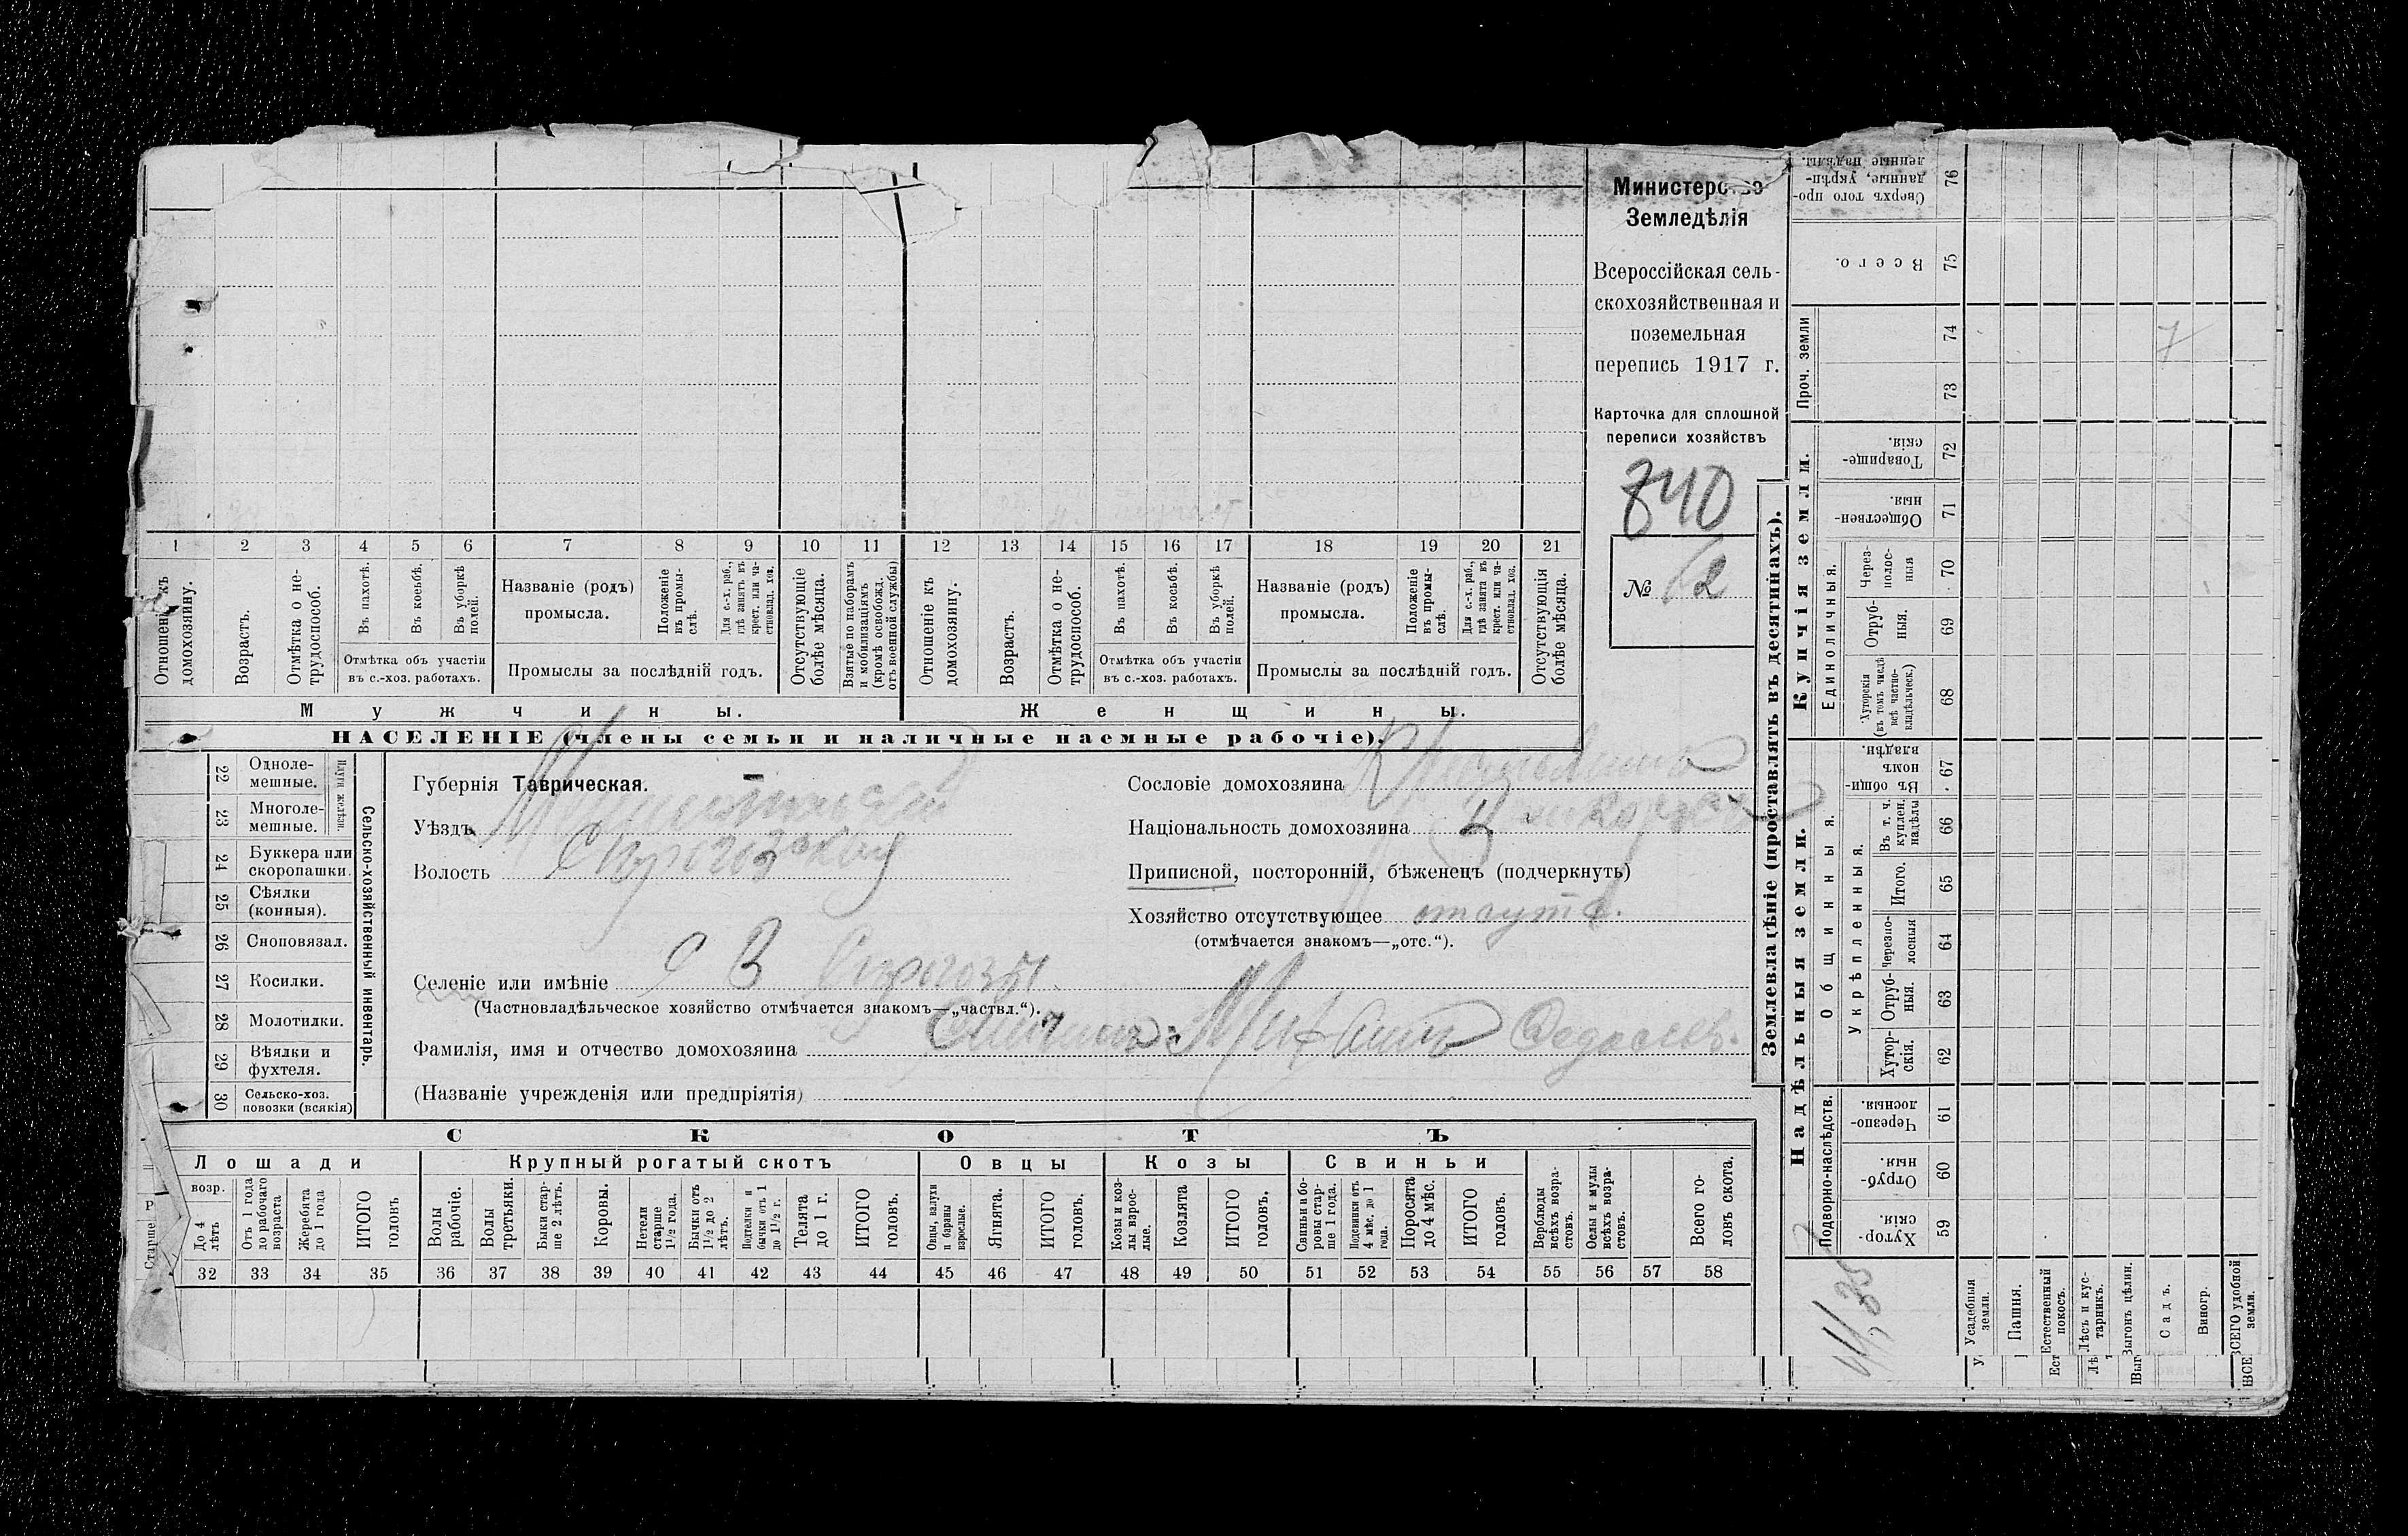 Министерство
Земледѣлія
Всероссійская сель-
скохозяйственная и
поземельная
перепись 1917 г.
Карточка для сплошной
переписи хозяйствъ
840
№ 12
1 2 3 4 5 6 7 8 9 10 11 12 13 14 15 16 17 18 19 20 21
Отношеніе къ домохозяину.
Возрастъ.
Отмѣтка о не-трудоспособ.
Въ пахотѣ.
Въ косьбѣ.
Въ уборкѣ полей.
Отмѣтка объ участіи
въ с.-хоз. работахъ.
Названіе (родъ)
промысла.
Положеніе въ промы-слѣ.
Для с.-х. раб., гдѣ занятъ въ крест. или ча-ствовлад. хоз.
Промыслы за послѣдній годъ.
Отсутствующіе болѣе мѣсяца.
Взятые по наборамъ и мобилизаціямъ (кромѣ освобожд. отъ военной службы)
Отношеніе къ домохозяину.
Возрастъ.
Отмѣтка о не-трудоспособ.
Въ пахотѣ.
Въ косьбѣ.
Въ уборкѣ полей.
Отмѣтка объ участіи
въ с.-хоз. работахъ.
Названіе (родъ)
промысла.
Положеніе въ промы-слѣ.
Для с.-х. раб., гдѣ занята въ крест. или ча-ствовлад. хоз.
Промыслы за послѣдній годъ.
Отсутствующія болѣе мѣсяца.
Мужчины. Женщины.
НАСЕЛЕНІЕ (члены семьи и наличные наемные рабочіе).
22 Одноле-мешные.
23 Многоле-мешные.
Плуги желѣзн.
24 Буккера или скоропашки.
25 Сѣялки (конныя).
26 Сноповязал.
27 Косилки.
28 Молотилки.
29 Вѣялки и фухтеля.
30 Сельско-хоз. повозки (всякія)
Сельско-хозяйственный инвентарь.
Губернія Таврическая.
Уѣздъ Мелитопольскій
Волость
Селеніе или имѣніе с В Сѣрогозы
(Частновладѣльческое хозяйство отмѣчается знакомъ—„частвл.“).
Фамилія, имя и отчество домохозяина
(Названіе учрежденія или предпріятія)
Сословіе домохозяина
Національность домохозяина
Приписной, посторонній, бѣженецъ (подчеркнуть)
Хозяйство отсутствующее
(отмѣчается знакомъ—„отс.“).
СКОТЪ
Лошади Крупный рогатый скотъ Овцы Козы Свиньи
возр.
Старше
До 4 лѣтъ
Отъ 1 года до рабочаго возраста
Жеребята до 1 года
ИТОГО головъ
Волы рабочіе.
Волы третьяки.
Быки стар-ше 2 лѣтъ.
Коровы.
Нетели старше 1½ года.
Бычки отъ 1½ до 2 лѣтъ.
Подтелки и бычки отъ 1 до 1½ г.
Телята до 1 г.
ИТОГО головъ.
Овцы, валухи и бараны взрослые.
Ягнята.
ИТОГО головъ.
Козы и коз-лы взрос-лые.
Козлята
ИТОГО головъ.
Свиньи и бо-ровы стар-ше 1 года.
Подсвинки отъ 4 мѣс. до 1 года.
Поросята до 4 мѣс.
ИТОГО головъ.
Верблюды всѣхъ возра-стовъ.
Ослы и мулы всѣхъ возра-стовъ.
Всего го-ловъ скота.
32 33 34 35 36 37 38 39 40 41 42 43 44 45 46 47 48 49 50 51 52 53 54 55 56 57 58
Землевладѣніе (проставлять въ десятинахъ).
Надѣльныя земли.
Купчія земли.
Проч. земли
Подворно-наслѣдств.
Общинныя.
Укрѣпленныя.
Единоличныя.
Хутор-скія. 59
Отруб-ныя. 60
Черезпо-лосныя. 61
Хутор-скія. 62
Отруб-ныя. 63
Черезпо-лосныя 64
Итого. 65
Въ т. ч. куплен. надѣлы 66
Въ общи-номъ владѣн. 67
Хуторскія (въ томъ числѣ всѣ частно-владѣльческ.) 68
Отруб-ныя. 69
Через-полос-ныя 70
Обществен-ныя. 71
Товарище-скія. 72
73
74
7
Всего. 75
Сверхъ того про-данные, укрѣп-ленные надѣлы. 76
Усадебныя земли.
Пашня.
Естественный покосъ.
Лѣсъ и кус-тарникъ.
Выгонъ цѣлин.
Садъ.
Виногр.
ВСЕГО удобной земли.